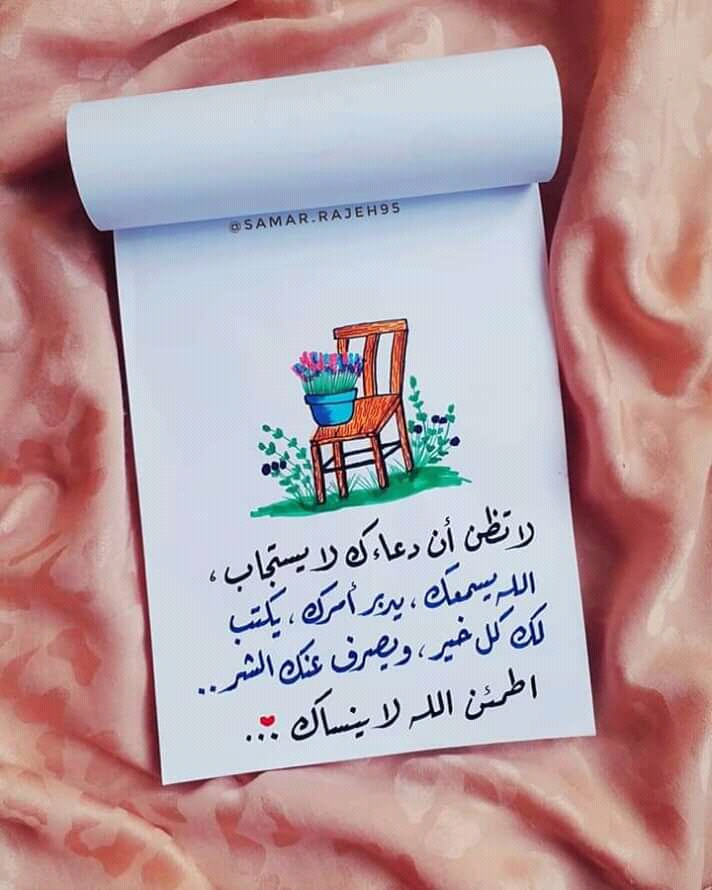 @SAMAR.RAJEH95
لا تظن أن دعاءك لا يستجاب ،
الله يسمعك ، يدبر أمرك ، يكتب
لك كل خير ، ويصرف عنك الشر ..
اطمئن الله لا ينساك ...